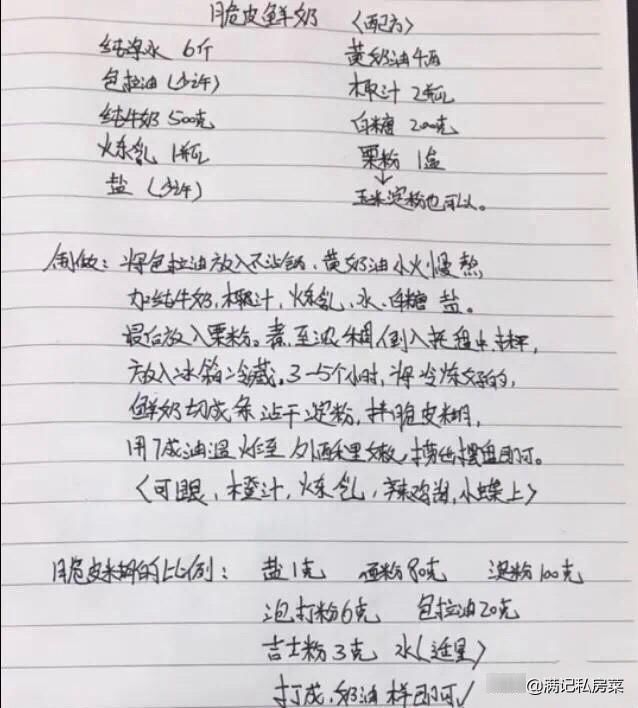 脆皮鲜奶 〈配方〉
纯净水 6斤 黄奶油4两
色拉油(少许) 椰汁 2瓶
纯牛奶 500克 白糖 200克
炼乳 1瓶 粟粉 1盒
盐 (少许) ↓
玉米淀粉也可以。
制做：将色拉油放入不沾锅、黄奶油小火慢熬
加纯牛奶,椰汁,炼乳、水、白糖 盐。
最后放入粟粉。煮至浓稠倒入托盘中抹平,
放入冰箱冷藏,3-5个小时,将冷冻好的,
鲜奶切成条沾干淀粉,挂脆皮糊,
用7成油温 炸至外酥里嫩,捞出摆盘即可。
〈可跟,橙汁,炼乳,辣鸡酱,小蝶上〉
脆皮糊的比例： 盐1克 面粉80克 淀粉100克
泡打粉6克 色拉油20克
吉士粉3克 水(适量)
打成,奶油样即可√
@满记私房菜